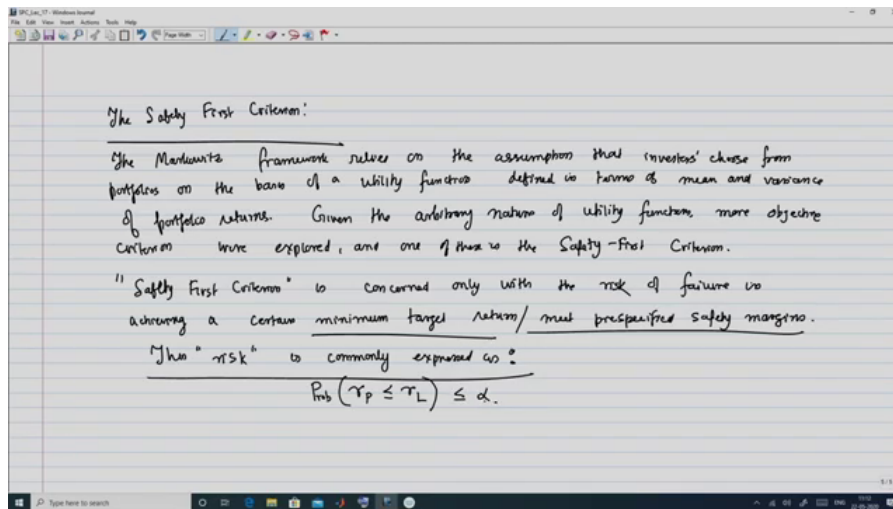 SPC_Lec_17 - Windows Journal
File Edit View Insert Actions Tools Help
Page Width
The Safety First Criterion:
The Markowitz framework relies on the assumption that investors' choose from
portfolios on the basis of a utility function defined in terms of mean and variance
of portfolio returns. Given the arbitrary nature of utility function, more objective
criterion were explored, and one of these is the Safety-First Criterion.
"Safety First Criterion" is concerned only with the risk of failure in
achieving a certain minimum target return/ meet prespecified safety margins.
This "risk" is commonly expressed as:
Prob (r_P ≤ r_L) ≤ α.
Type here to search
ENG
22-05-2020